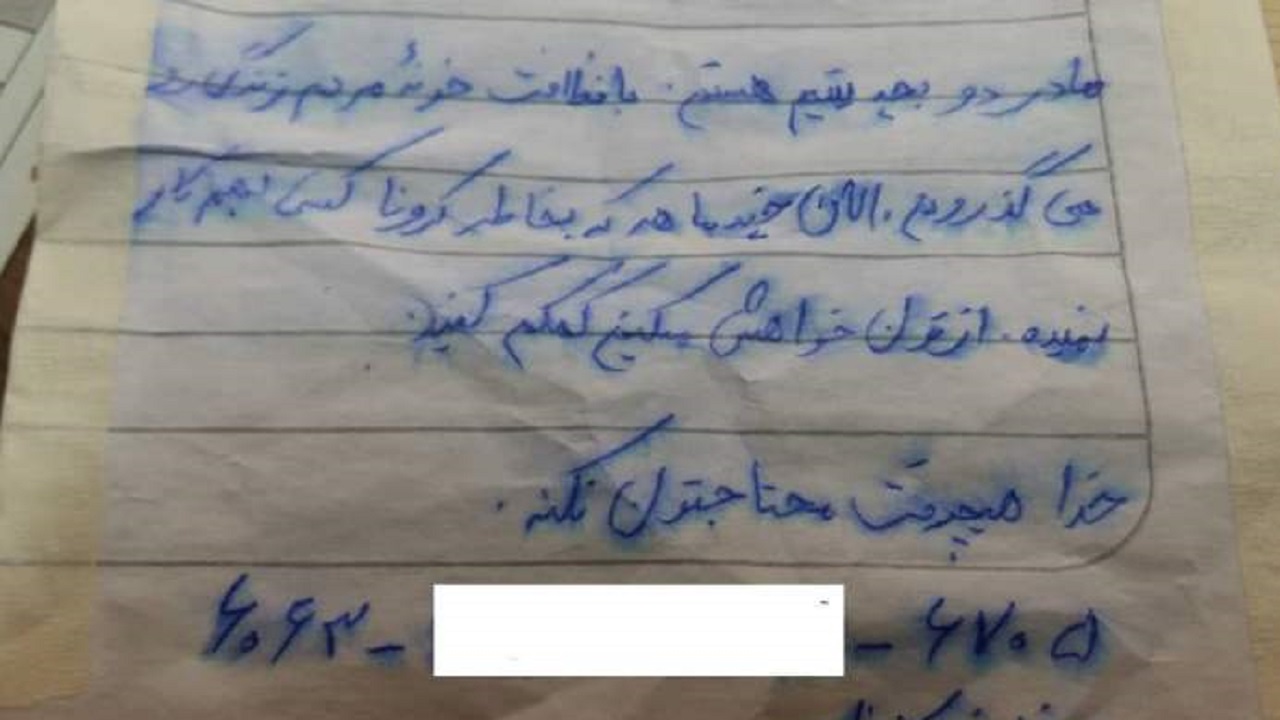 مادر دو بچه یتیم هستم. با نظافت خونهٔ مردم زندگی رو
می گذرونم. الان چند ماهه که بخاطر کرونا کسی بهم کار
نمیده. ازتون خواهش میکنم کمکم کنید.
خدا هیچوقت محتاجتون نکنه.
۶۰۶۳ - - ۶۷۰۵